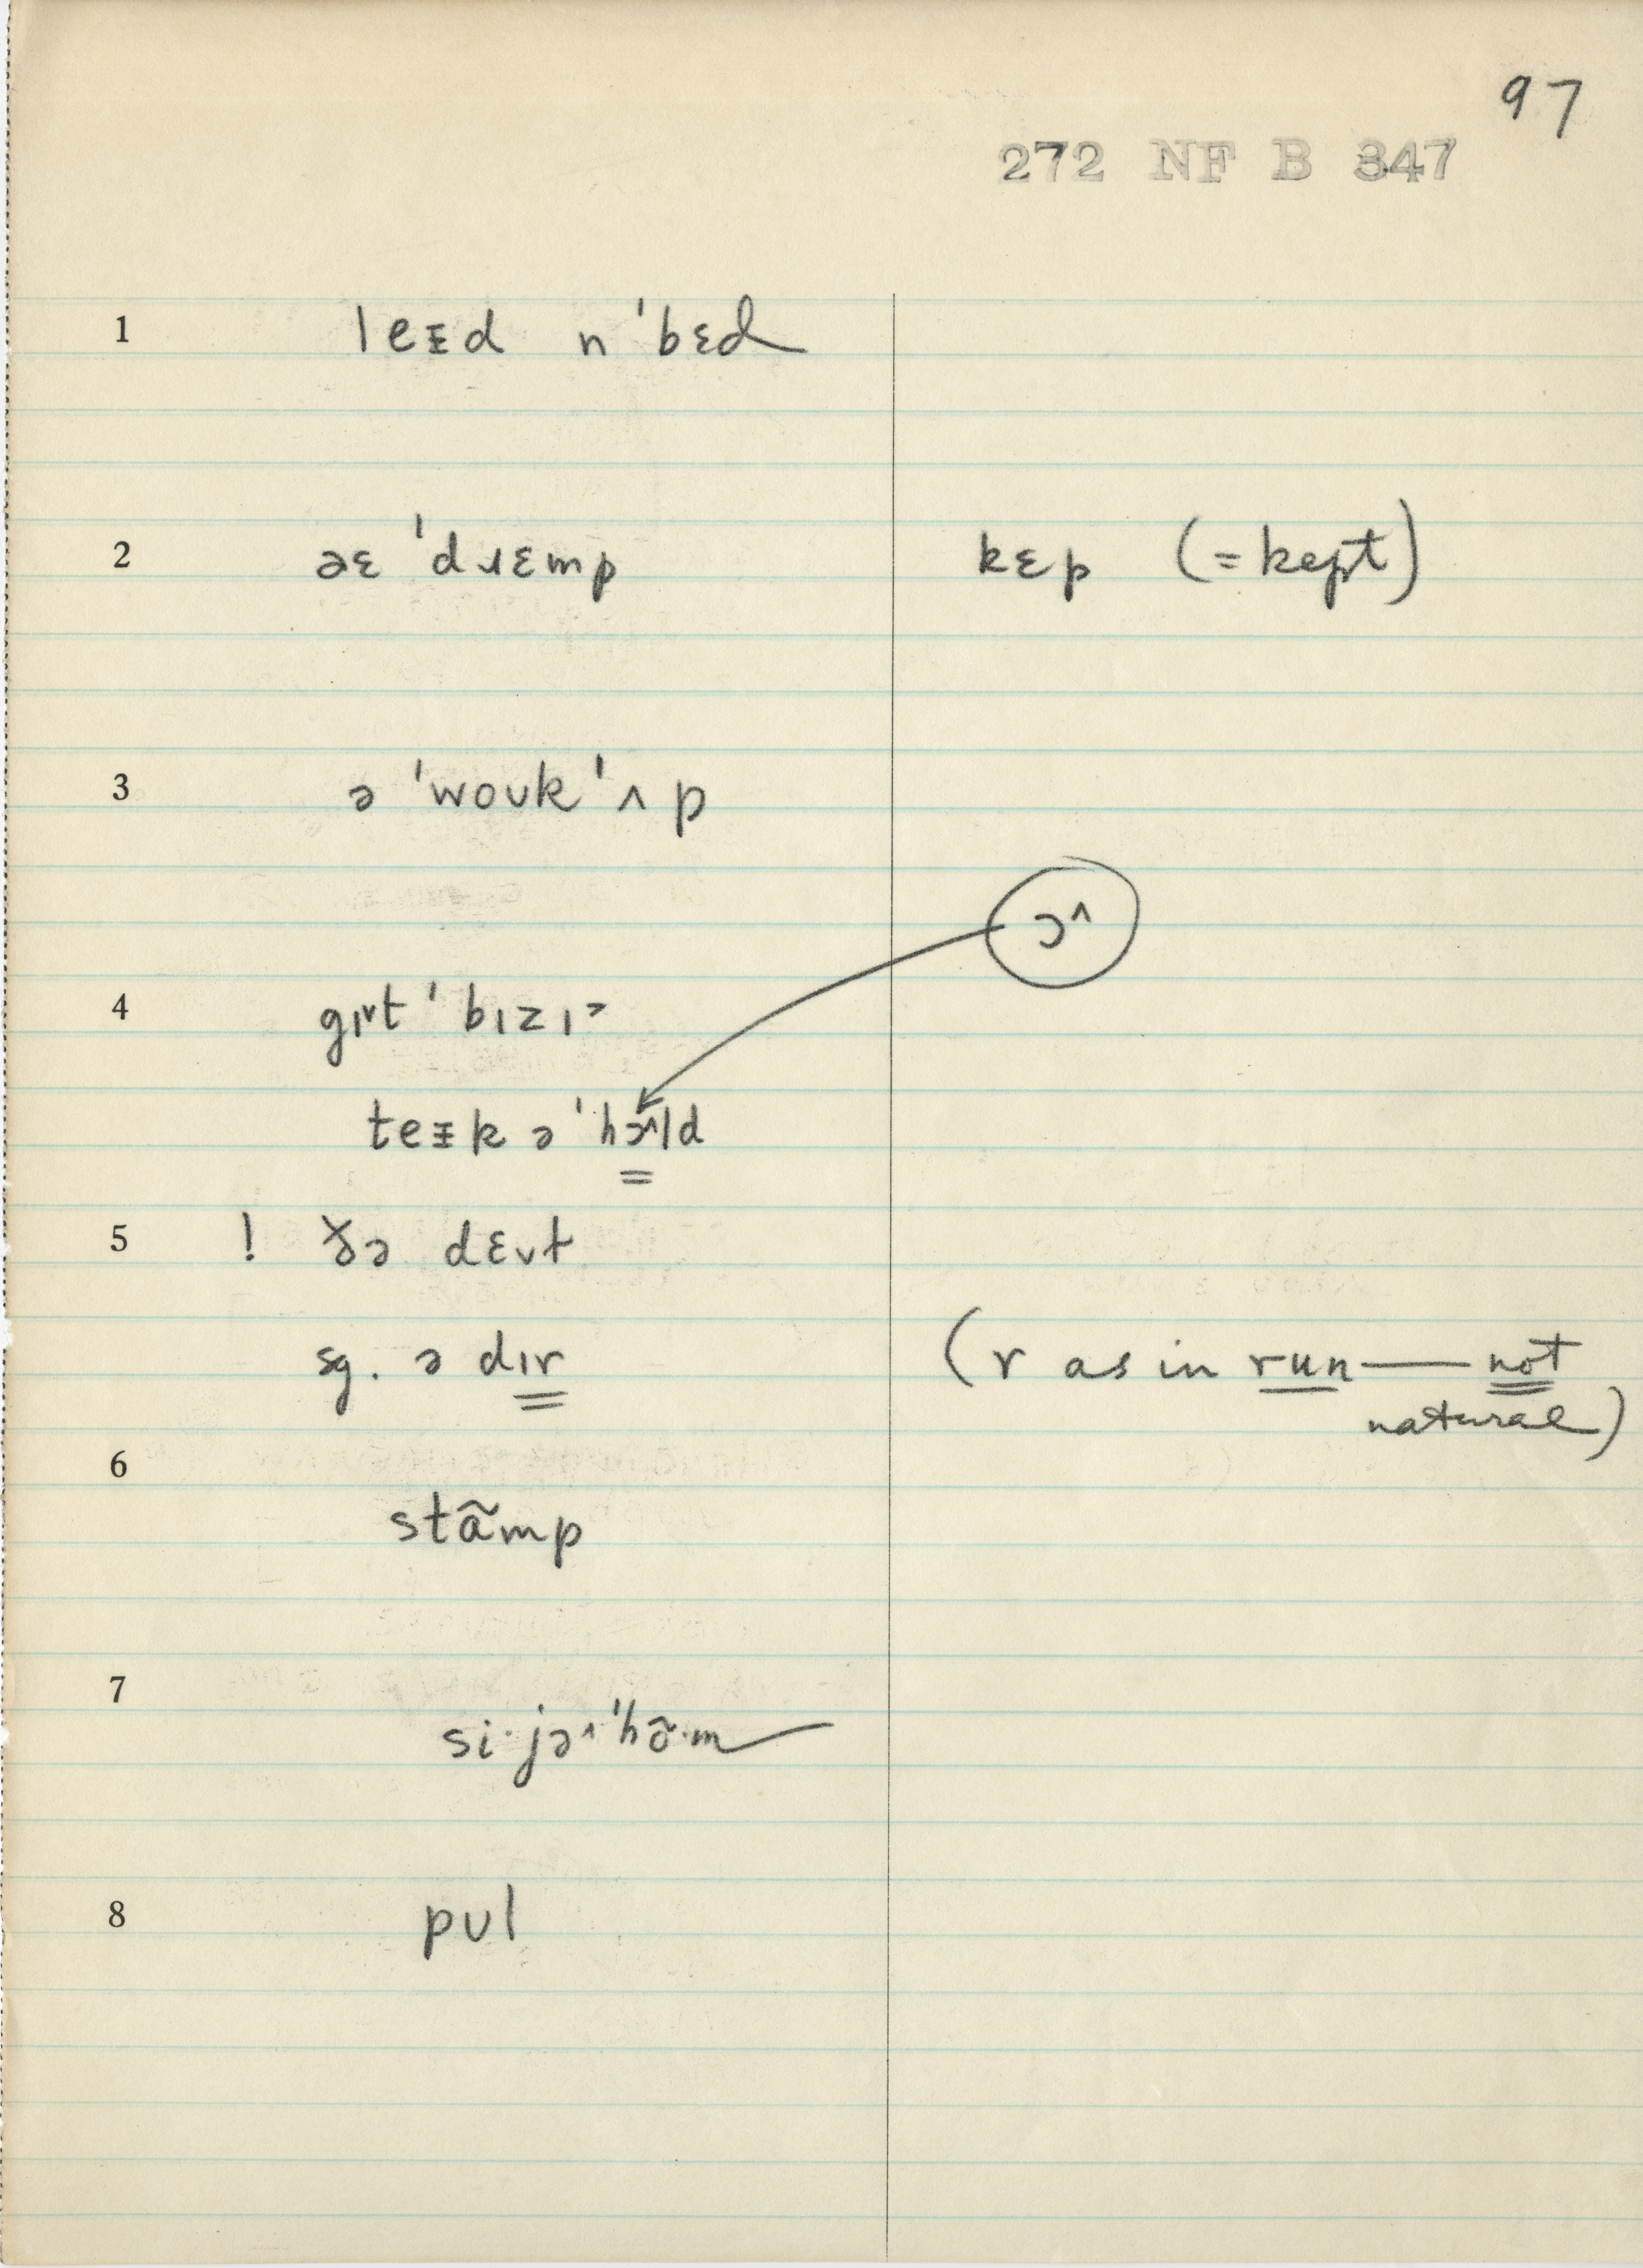 97
272 NF B 347
1 leᵻd n ˈbɛd
2 əɛ ˈdɹɛmp kɛp (=kept)
3 ə ˈwoʊk ˈʌp
ɔ^
4 gɪ˅t ˈbɪzɪ˃
teᵻk ə ˈhɔ^ld
5 ! ɣə dɛ˅t
sg. ə dɪr (r as in run — not
natural)
6
stãmp
7
si·jə^ˈhõ·m
8 pʊl